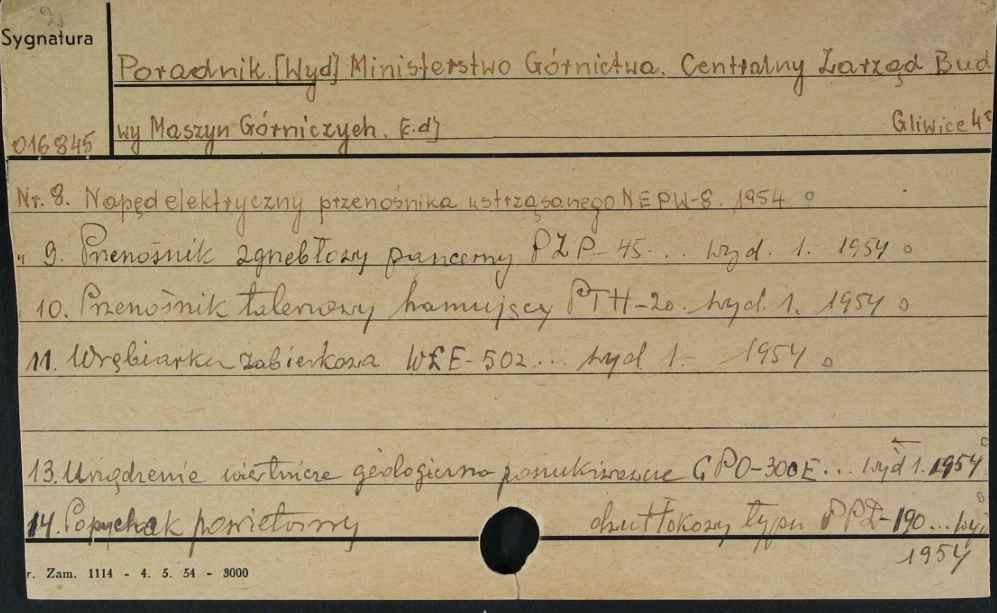 Sygnatura
Poradnik. [Wyd] Ministerstwo Górnictwa. Centralny Zarząd Bud
016845 wy Maszyn Górniczych. [c.d] Gliwice
Nr. 8. Napęd elektryczny przenośnika wstrząsanego NEPW-8. 1954
" 9. Przenośnik zgrzebłowy pancerny PZP-45... wyd. 1. 1954
10. Przenośnik talerzowy hamujący PTH-20. wyd. 1. 1954
11. Wrębiarka żabierkowa WŁE-502... wyd 1. 1954
13. Urządzenie wiertnicze geologiczno poszukiwawcze GPO-300E... wyd 1. 1954
14. Popychak powietrzny dwutłokowy typu PPD-190...
1954
r. Zam. 1114 - 4. 5. 54 - 3000